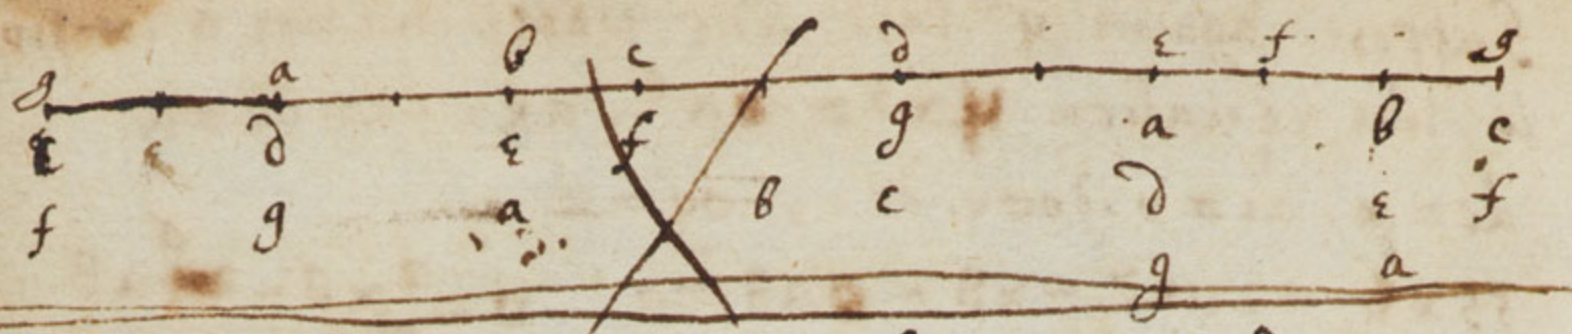 g a b c d e f g
c d e f g a b c
f g a b c d e f
g a